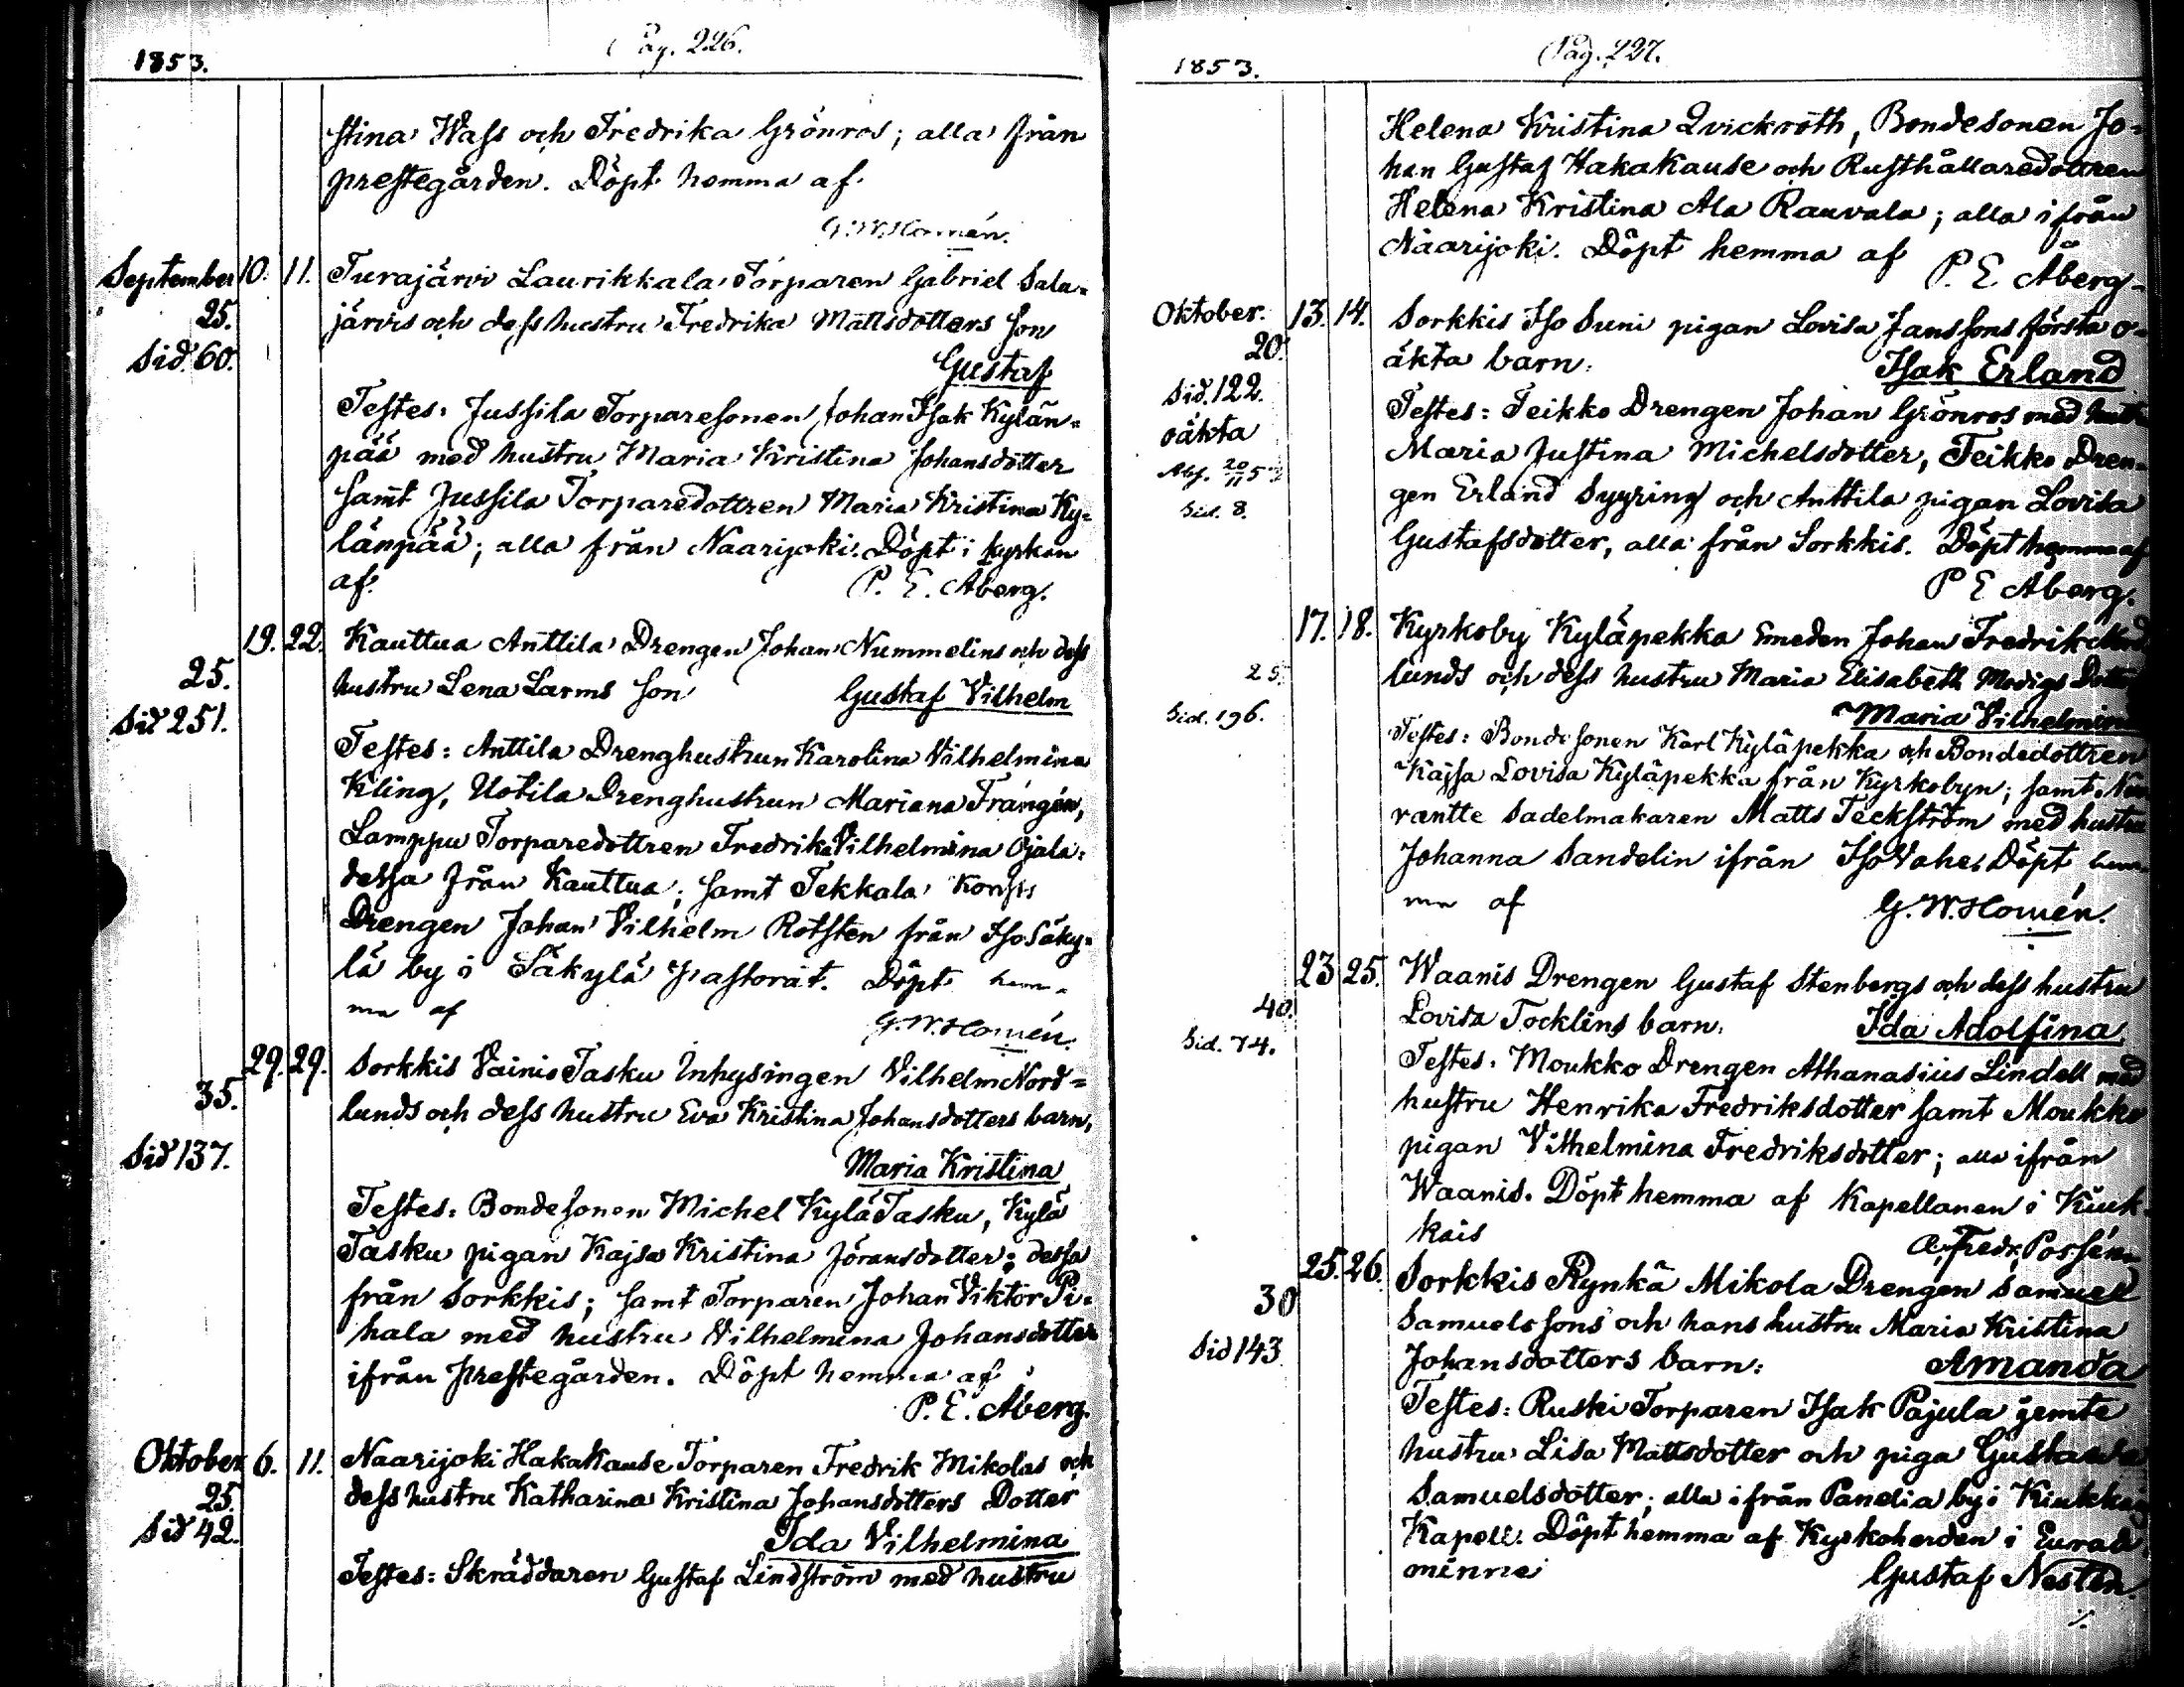 1853.
Pag. 226.
stina Wass och Fredrika Grönros; alla från
prestegården. Döpt hemma af
G. W. Homén.
September 10. 11. Turajärvi Laurikkala Torparen Gabriel Sala=
25. järvis och dess hustru Fredrika Mattsdotters son
Sid. 60. Gustaf
Testes: Jussila Torparesonen Johan Isak Kylän=
pää med hustru Maria Kristina Johansdotter
samt Jussila Torparedottren Maria Kristina Ky=
länpää; alla från Naarijoki. Döpt i kyrkan
af P. E. Åberg.
19. 22. Kauttua Anttila Drengen Johan Nummelins och dess
25. hustru Lena Larms son Gustaf Vilhelm
Sid 251.
Testes: Anttila Drenghustrun Karolina Vilhelmina
Kling, Uotila Drenghustrun Mariana Frangén,
Lamppu Torparedottren Fredrika Vilhelmina Ojala:
dessa från Kauttua; samt Tekkala
Drengen Johan Vilhelm Rotsten från Iso Säky=
lä by i Säkylä Pastorat. Döpt hem=
ma af G. W. Homén.
29. 29. Sorkkis Vainio Tasku Inhysingen Vilhelm Nord=
35. lunds och dess hustru Eva Kristina Johansdotters barn,
Sid 137. Maria Kristina
Testes: Bondesonen Michel Kylä Tasku, Kylä
Tasku pigan Kajsa Kristina Jöransdotter; dessa
från Sorkkis; samt Torparen Johan Viktor Pi=
hala med hustru Vilhelmina Johansdotter
ifrån prestegården. Döpt hemma af
P. E. Åberg.
Oktober 6. 11. Naarijoki HakaKause Torparen Fredrik Mikolas och
25. dess hustru Katharina Kristina Johansdotters Dotter
Sid 42. Ida Vilhelmina
Testes: Skräddaren Gustaf Lindström med hustru
1853.
Pag. 227.
Helena Kristina Qvickroth, Bondesonen Jo=
han Gustaf HakaKause och Rusthållaredottren
Helena Kristina Ala Rauvala; alla ifrån
Naarijoki. Döpt hemma af
P. E. Åberg
Oktober. 13. 14. Sorkkis Iso Suni pigan Lovisa Janssons första o=
20. äkta barn: Isak Erland
Sid. 122.
oäkta
Sid. 8.
Testes: Teikko Drengen Johan Grönros med hustru
Maria Justina Michelsdotter, Teikko Dren=
gen Erland Syyring och Anttila pigan Lovisa
Gustafsdotter, alla från Sorkkis. Döpt hemma af
P E Åberg.
17. 18. Kyrkoby Kyläpekka Smeden Johan Fredrik
25. lunds och dess hustru Maria Elisabeth Modigs Dotter
Sid. 196. Maria Vilhelmina
Testes: Bondesonen Karl Kyläpekka och Bondedottren
Kajsa Lovisa Kyläpekka från Kyrkobyn; samt
rantte Sadelmakaren Matts Teckström med hustru
Johanna Sandelin ifrån Iso Vahe. Döpt hem=
ma af G. W. Homén.
23 25. Waanis Drengen Gustaf Stenbergs och dess hustru
40. Lovisa Tocklins barn: Ida Adolfina
Sid. 74.
Testes: Moukko Drengen Athanasius Lindell med
hustru Henrika Fredriksdotter samt Moukko
pigan Vilhelmina Fredriksdotter; alla ifrån
Waanis. Döpt hemma af Kapellanen i Kiuk=
kais Fredr. Possén
25. 26. Sorkkis Rynkä Mikola Drengen Samuel
30 Samuelssons och hans hustru Maria Kristina
Sid 143 Johansdotters barn: Amanda
Testes: Ruski Torparen Isak Pajula jemte
hustru Lisa Mattsdotter och piga Gustava
Samuelsdotter; alla ifrån Panelia by i Kiukkais
Kapell. Döpt hemma af Kyrkoherden i Euraå=
minne Gustaf